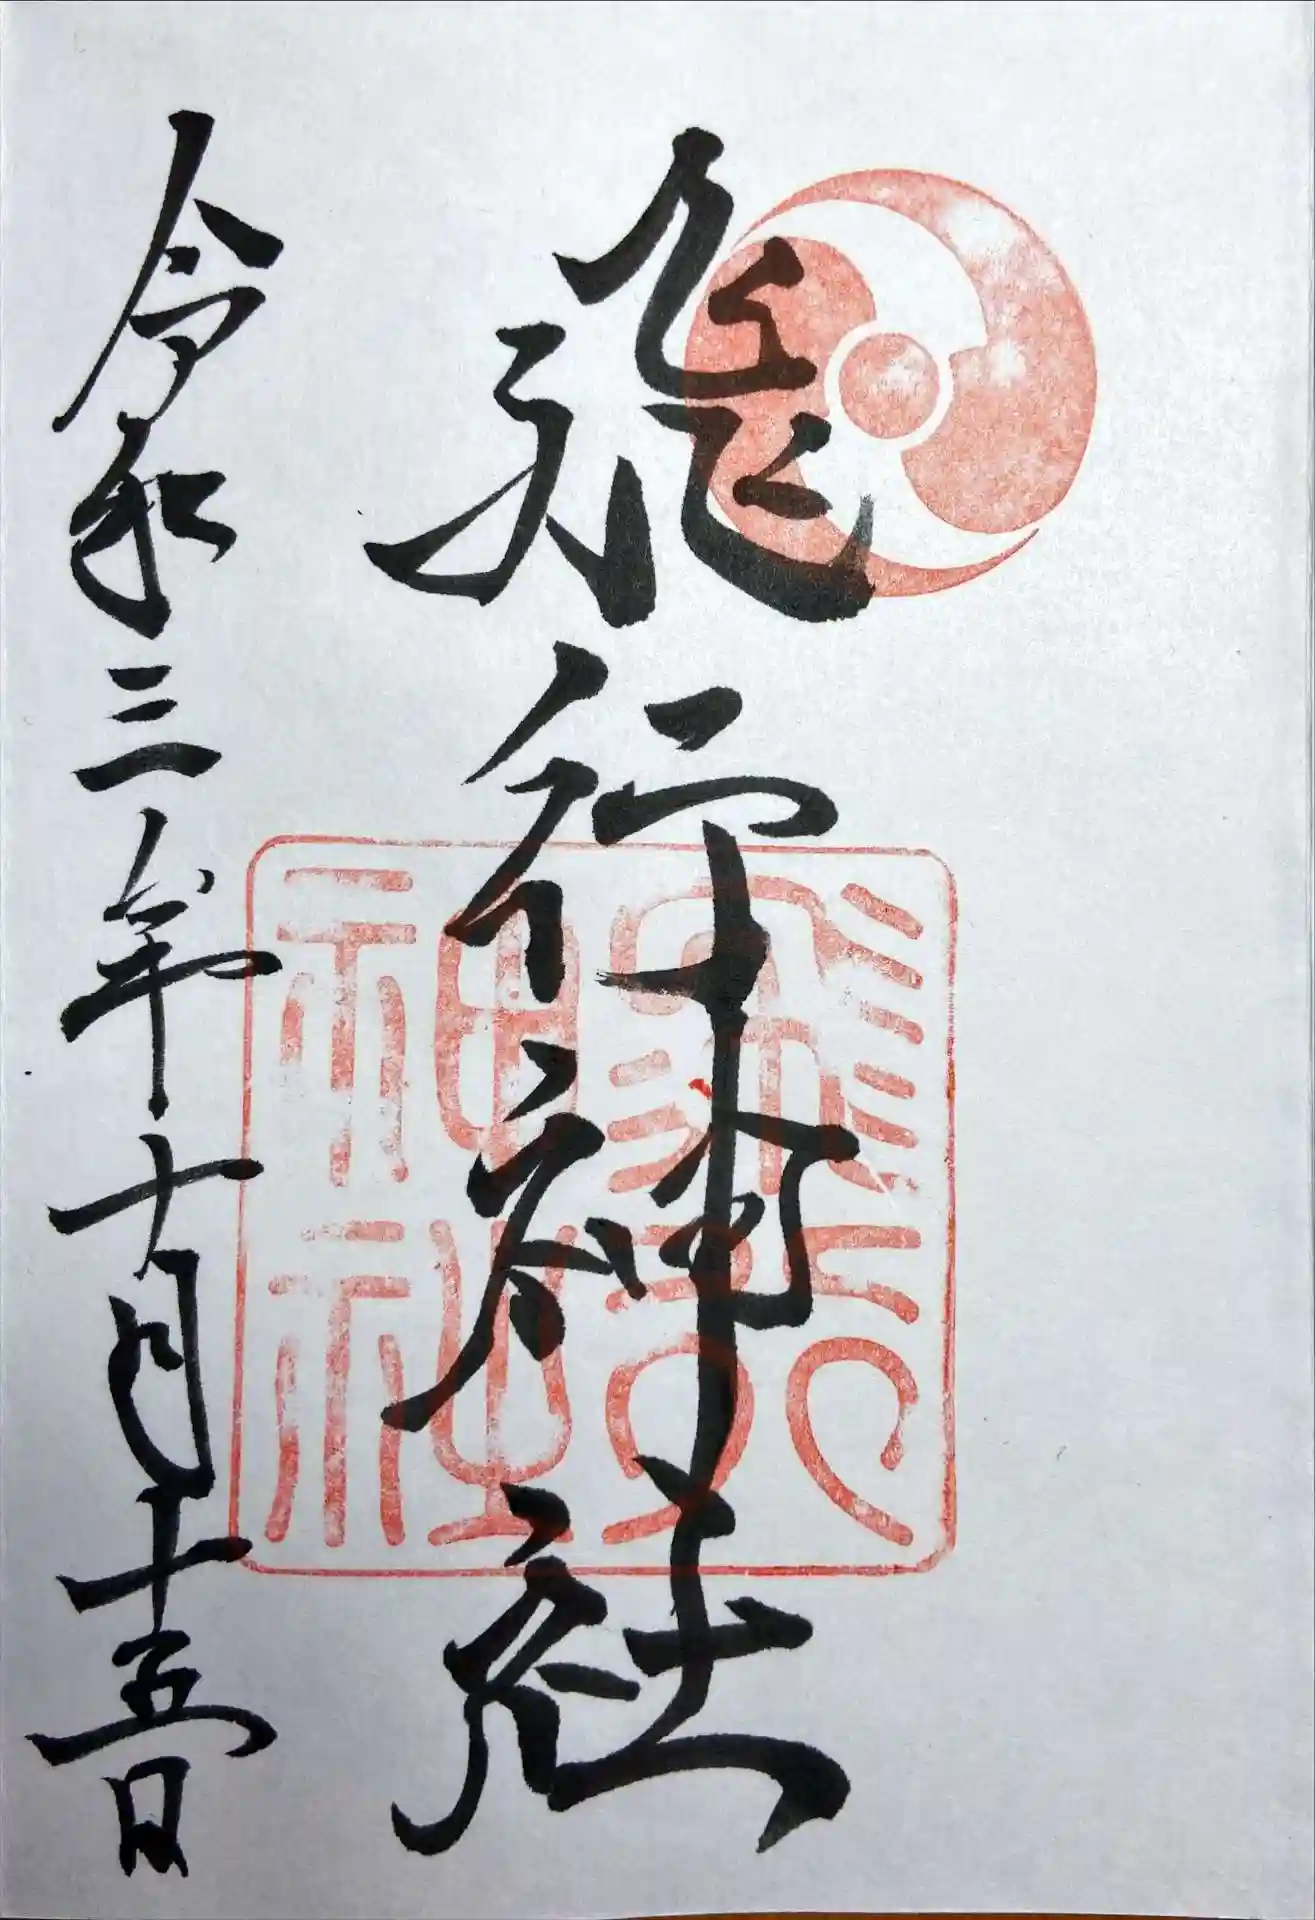 飛行神社
飛行
神社
令和三年十月十五日